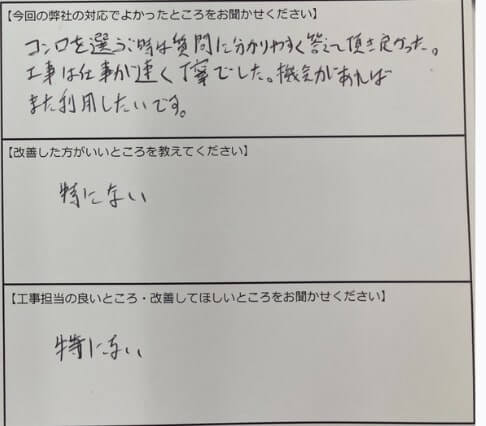 【今回の弊社の対応でよかったところをお聞かせください】
コンロを選ぶ時は質問に分かりやすく答えて頂き良かった。
工事は仕事が速く丁寧でした。機会があれば
また利用したいです。
【改善した方がいいところを教えてください】
特にない
【工事担当の良いところ・改善してほしいところをお聞かせください】
特にない